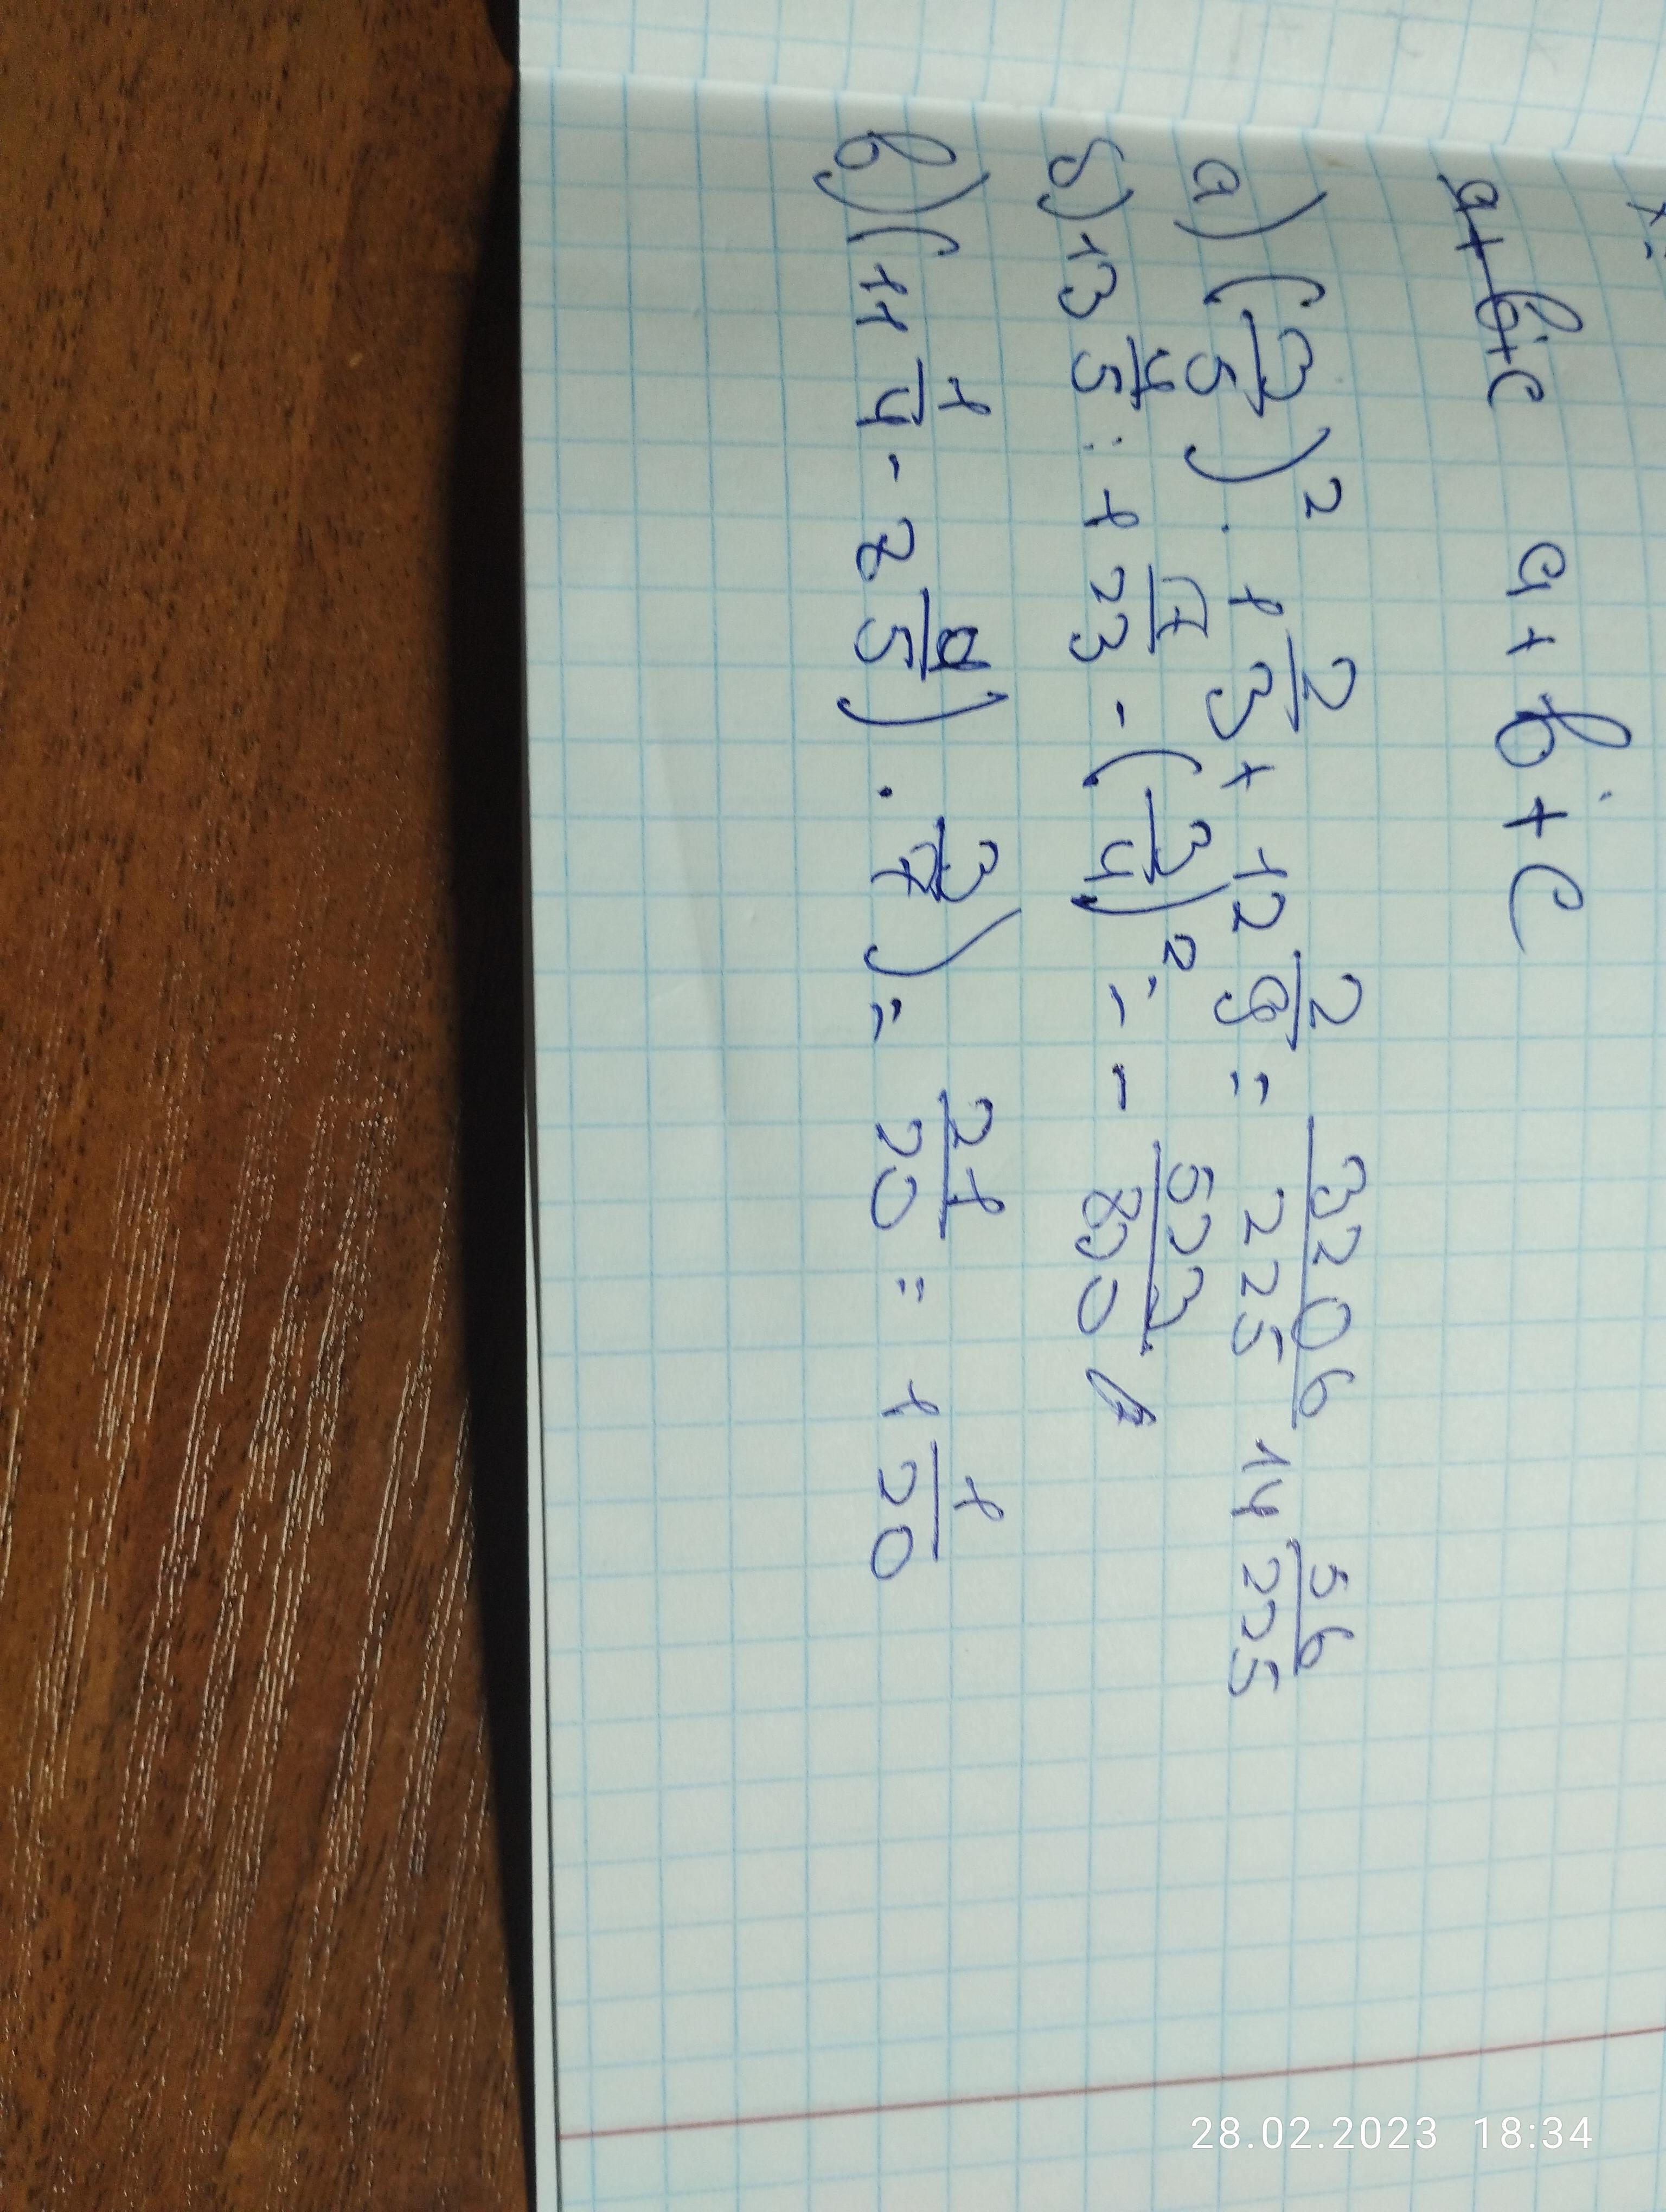 a+b+c a + b + c
а) (3/5)² · 1 2/3 + 12 2/9 = 3206/225 14 56/225
б) 13 4/5 : 1 7/23 - (3/4)² = - 533/800
в) (11 1/4 - 8 4/5) · 3/7) = 21/20 = 1 1/20
28.02.2023 18:34